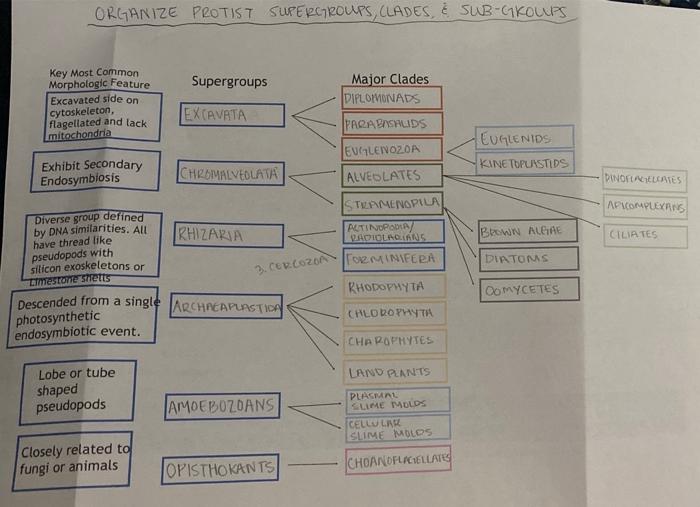 ORGANIZE PROTIST SUPERGROUPS, CLADES, & SUB-GROUPS
Key Most Common
Morphologic Feature
Supergroups
Major Clades
Excavated side on
cytoskeleton,
flagellated and lack
mitochondria
EXCAVATA
DIPLOMONADS
PARABASALIDS
EUGLENOZOA
EUGLENIDS
KINETOPLASTIDS
Exhibit Secondary
Endosymbiosis
CHROMALVEOLATA
ALVEOLATES
STRAMENOPILA
DINOFLAGELLATES
APICOMPLEXANS
CILIATES
Diverse group defined
by DNA similarities. All
have thread like
pseudopods with
silicon exoskeletons or
Limestone shells
RHIZARIA
ACTINOPODIA/
RADIOLARIANS
FORMINIFERA
3. CERCOZOA
BROWN ALGAE
DIATOMS
OOMYCETES
Descended from a single
photosynthetic
endosymbiotic event.
ARCHAEAPLASTIDA
RHODOPHYTA
CHLOROPHYTA
CHAROPHYTES
LAND PLANTS
Lobe or tube
shaped
pseudopods
AMOEBOZOANS
PLASMAL
SLIME MOLDS
CELLULAR
SLIME MOLDS
Closely related to
fungi or animals
OPISTHOKANTS
CHOANOFLAGELLATES